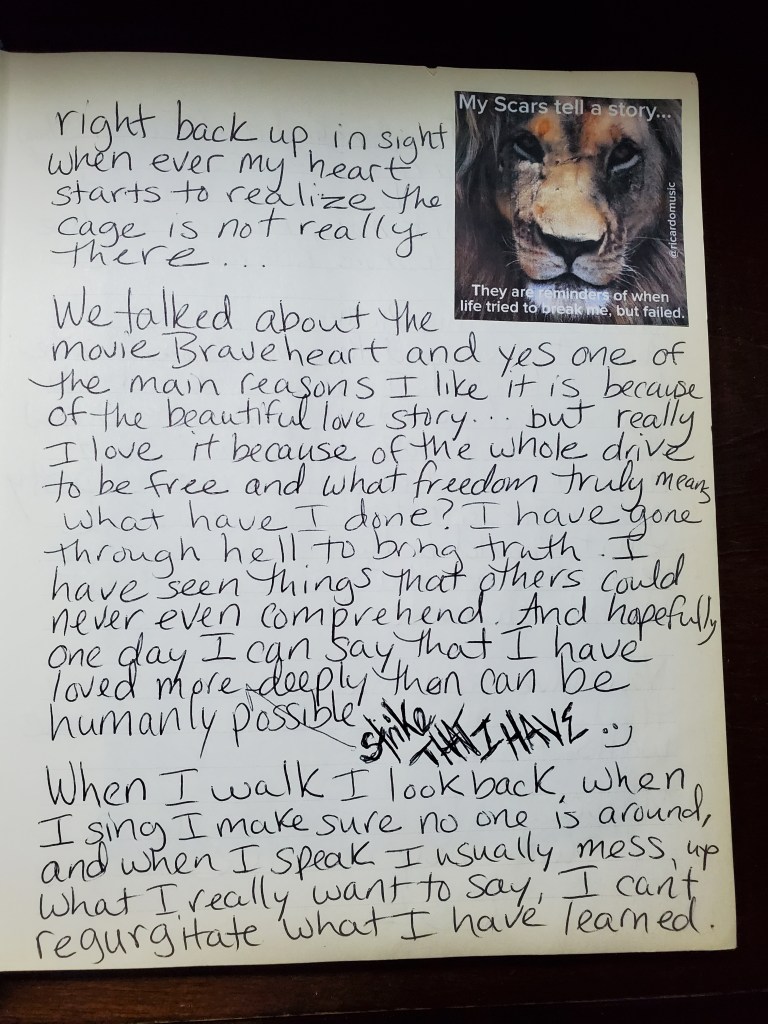 right back up in sight
when ever my heart
starts to realize the
cage is not really
there...
My Scars tell a story...
@ricardomusic
They are reminders of when
life tried to break me, but failed.
We talked about the
movie Braveheart and yes one of
the main reasons I like it is because
of the beautiful love story... but really
I love it because of the whole drive
to be free and what freedom truly means
what have I done? I have gone
through hell to bring truth. I
have seen things that others could
never even comprehend. And hopefully
one day I can say that I have
loved more deeply then can be
humanly possible
strike THAT I HAVE :)
When I walk I look back, when
I sing I make sure no one is around,
and when I speak I usually mess up
what I really want to say, I cant
regurgitate what I have learned.